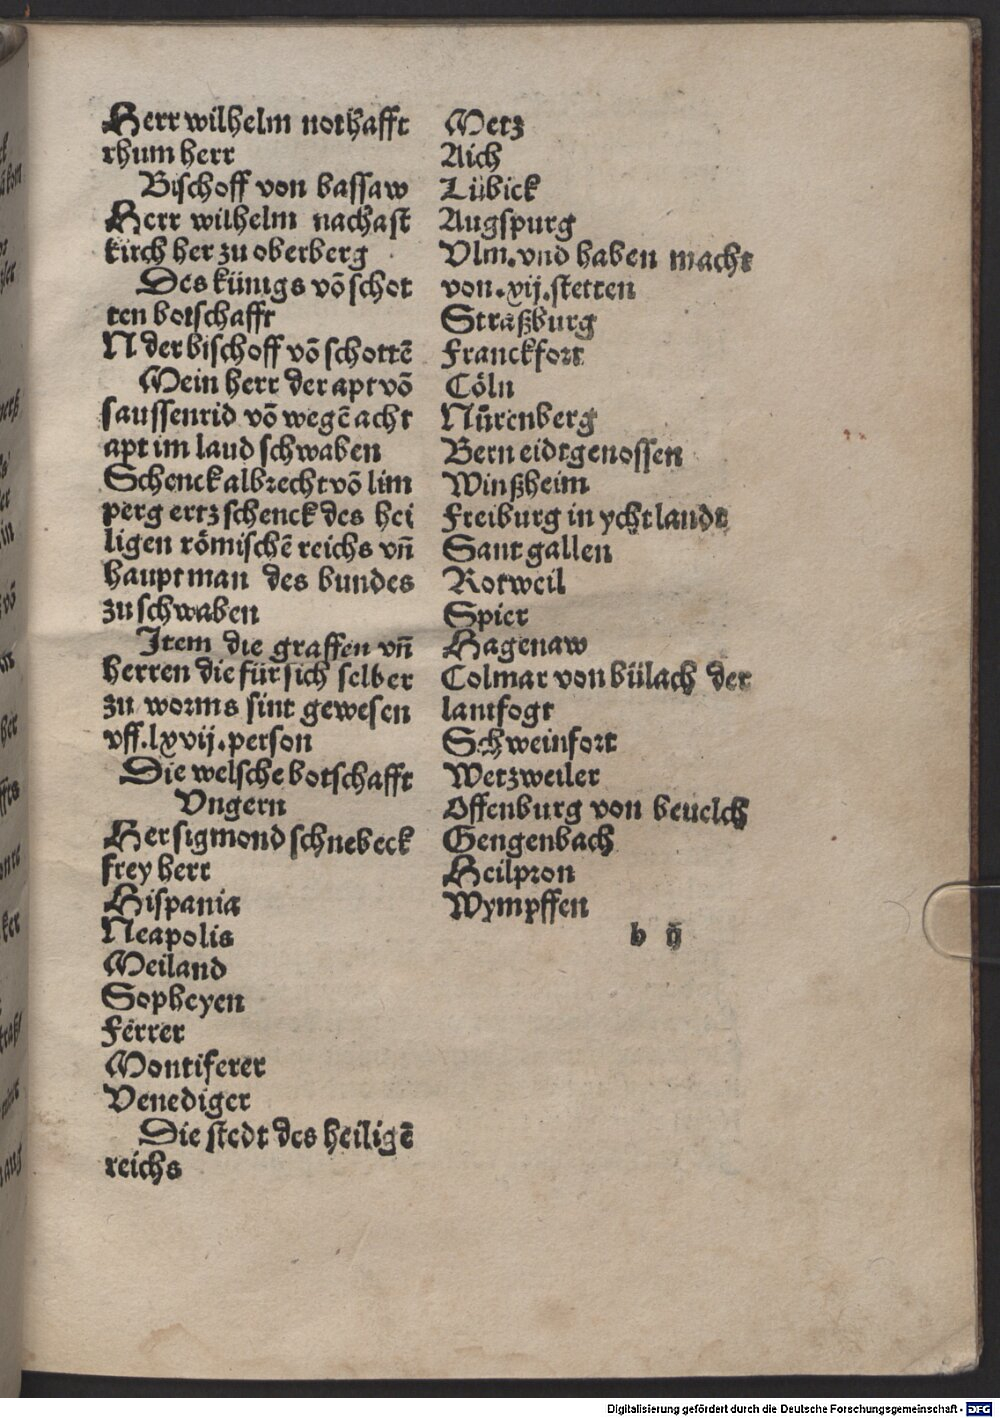 Herr wilhelm nothafft
rhum herr
Bischoff von bassaw
Herr wilhelm nachast
kirch her zu oberberg
Des künigs võ schot
ten botschafft
N der bischoff võ schottẽ
Mein herr der apt võ
saussenrid võ wegẽ acht
apt im laud schwaben
Schenck albrecht võ lim
perg ertzschenck des hei
ligen römischẽ reichs vñ
hauptman des bundes
zu schwaben
Item die graffen vñ
herren die für sich selber
zu worms sint gewesen
vff.lxvij.person
Die welsche botschafft
Vngern
Her sigmond schnebeck
frey herr
Hispania
Neapolis
Meiland
Sopheyen
Ferrer
Montiferer
Venediger
Die stedt des heiligẽ
reichs
Metz
Aich
Lübick
Augspurg
Vlm.vnd haben macht
von.xij.stetten
Straßburg
Franckfort
Cöln
Nürenberg
Bern eidtgenossen
Winßheim
Freiburg in ychtlandt
Sant gallen
Rotweil
Spier
Hagenaw
Colmar von bülach der
lantfogt
Schweinfort
Wetzweiler
Offenburg von beuelch
Gengenbach
Heilpron
Wympffen
b ij
Digitalisierung gefördert durch die Deutsche Forschungsgemeinschaft - DFG